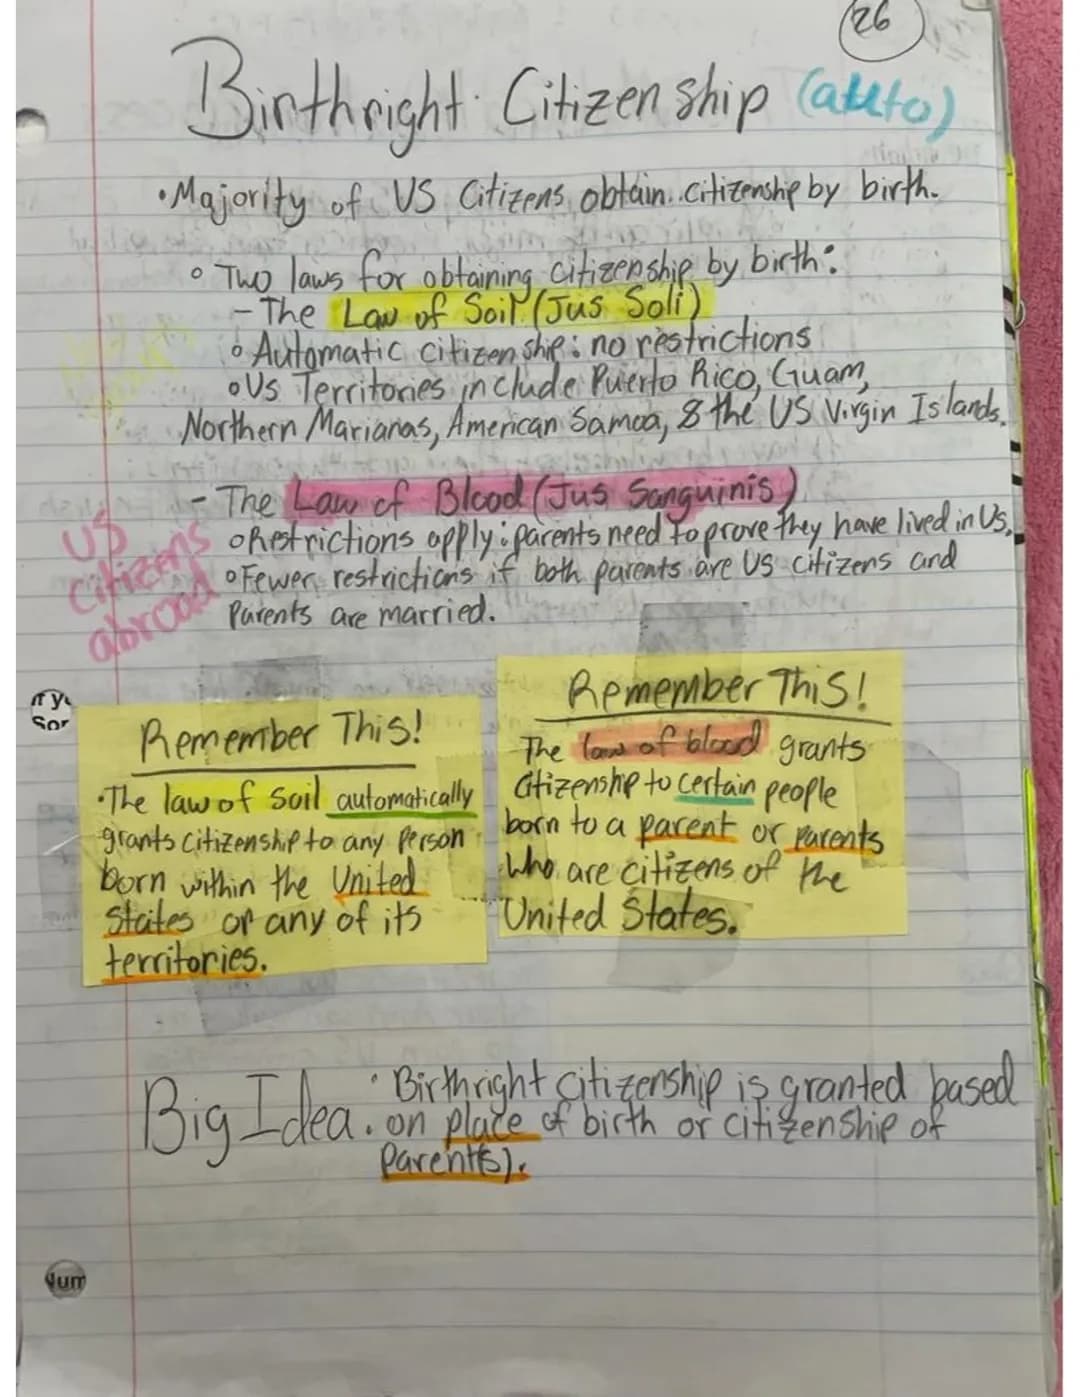 26
Birthright Citizenship (auto)
•Majority of US Citizens obtain citizenship by birth.
◦ Two laws for obtaining citizenship by birth:
- The Law of Soil (Jus Soli)
◦ Automatic citizenship: no restrictions
◦ US Territories include Puerto Rico, Guam,
Northern Marianas, American Samoa, & the US Virgin Islands.
- The Law of Blood (Jus Sanguinis)
◦ Restrictions apply: parents need to prove they have lived in US.
◦ Fewer restrictions if both parents are US citizens and
parents are married.
US
citizens
abroad
Remember This!
•The law of soil automatically
grants citizenship to any person
born within the United
States or any of its
territories.
Remember This!
The law of blood grants
citizenship to certain people
born to a parent or parents
who are citizens of the
United States.
Big Idea.
• Birthright citizenship is granted based
on place of birth or citizenship of
parent(s).